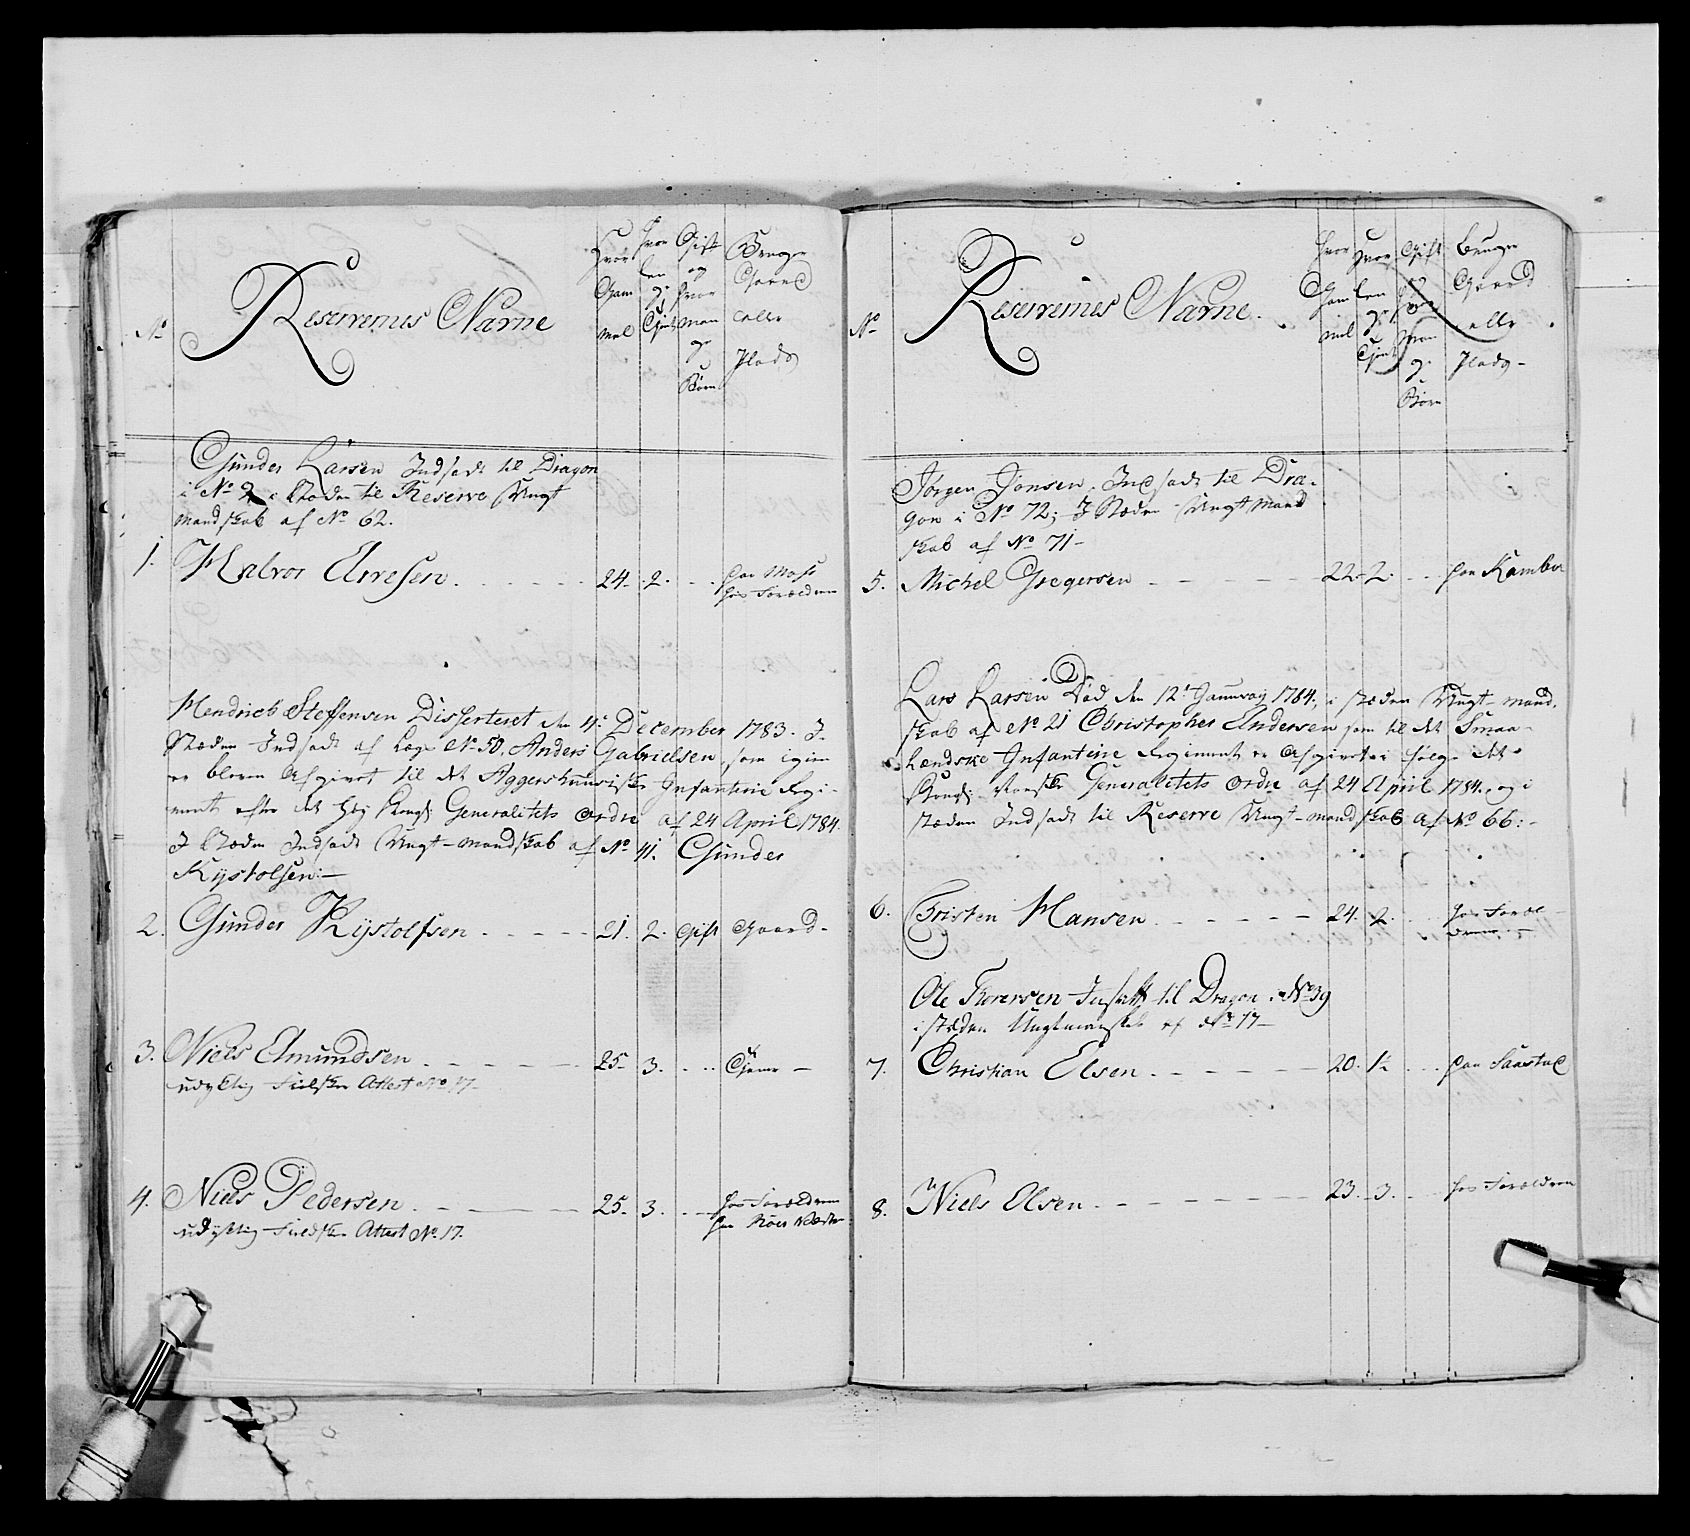 No
Reserverness Navne
Hvor
Gam
mel
Hvor
len
ge
Tjent
Gift
og
Hvor
man
ge
Børn
Bruger
Gaard
eller
Plads
Gunder Larsen Indsadt til Dragon
i No 2 i Stæden til Reserve Ungt
mandskab af No 62.
1. Halvor Arvesen 24. 2. paa Moss
hos Forældrene
Hendrich Steffensen Disserteret den 4. December 1783. I
Stæden Indsadt af Læg No 50. Anders Gabrielsen, som igien
er bleven Afgivet til det Aggershuusiske Infanterie Regi-
ment efter det Høy Kongl. Generalitets Ordre af 24 April 1784.
I Stæden Indsadt Ungt-mandskab af No 41. Gunder
Kystolsen:
2. Gunder Kystolfsen 21. 2. Gift Gaard
3. Niels Amundsen 25. 3. Hjeme
udygtig Feldskier Attest No 17.
4. Niels Pedersen 25. 3. hos Forældrene
paa
udygtig Feldskier Attest No 17.
No
Reserverness Navne.
Hvor
Gam
mel
Hvor
len
ge
Tjent
Gift
og
Hvor
man
ge
Børn
Bruger
Gaard
eller
Plads
Jørgen Jonsen, Indsadt til Dra-
gon i No 72; I Stæden Ungt Mand
skab af No 71
5. Michel Gregersen 22. 2. paa Kambo
Lars Larsen Død den 12t Januarij 1784, i stæden Ungt-mand,
skab af No 21 Christopher Andersen som til det Smaa-
lændske Infanterie Regiment er Afgivet i følge det
Kongl. Norske Generalitets Ordre af 24 April 1784. og i
stæden Indsadt til Reserve Ungt-mandskab af No 66:
6. Cristen Hansen 24. 2. hos Foræl-
drene
Ole Thorersen Insatt til Dragon i No 39
i stæden Ungtmanskab af No 17
7. Christian Elsen 20. 1 paa Saastad
8. Niels Olsen 23. 3. hos Forældrene